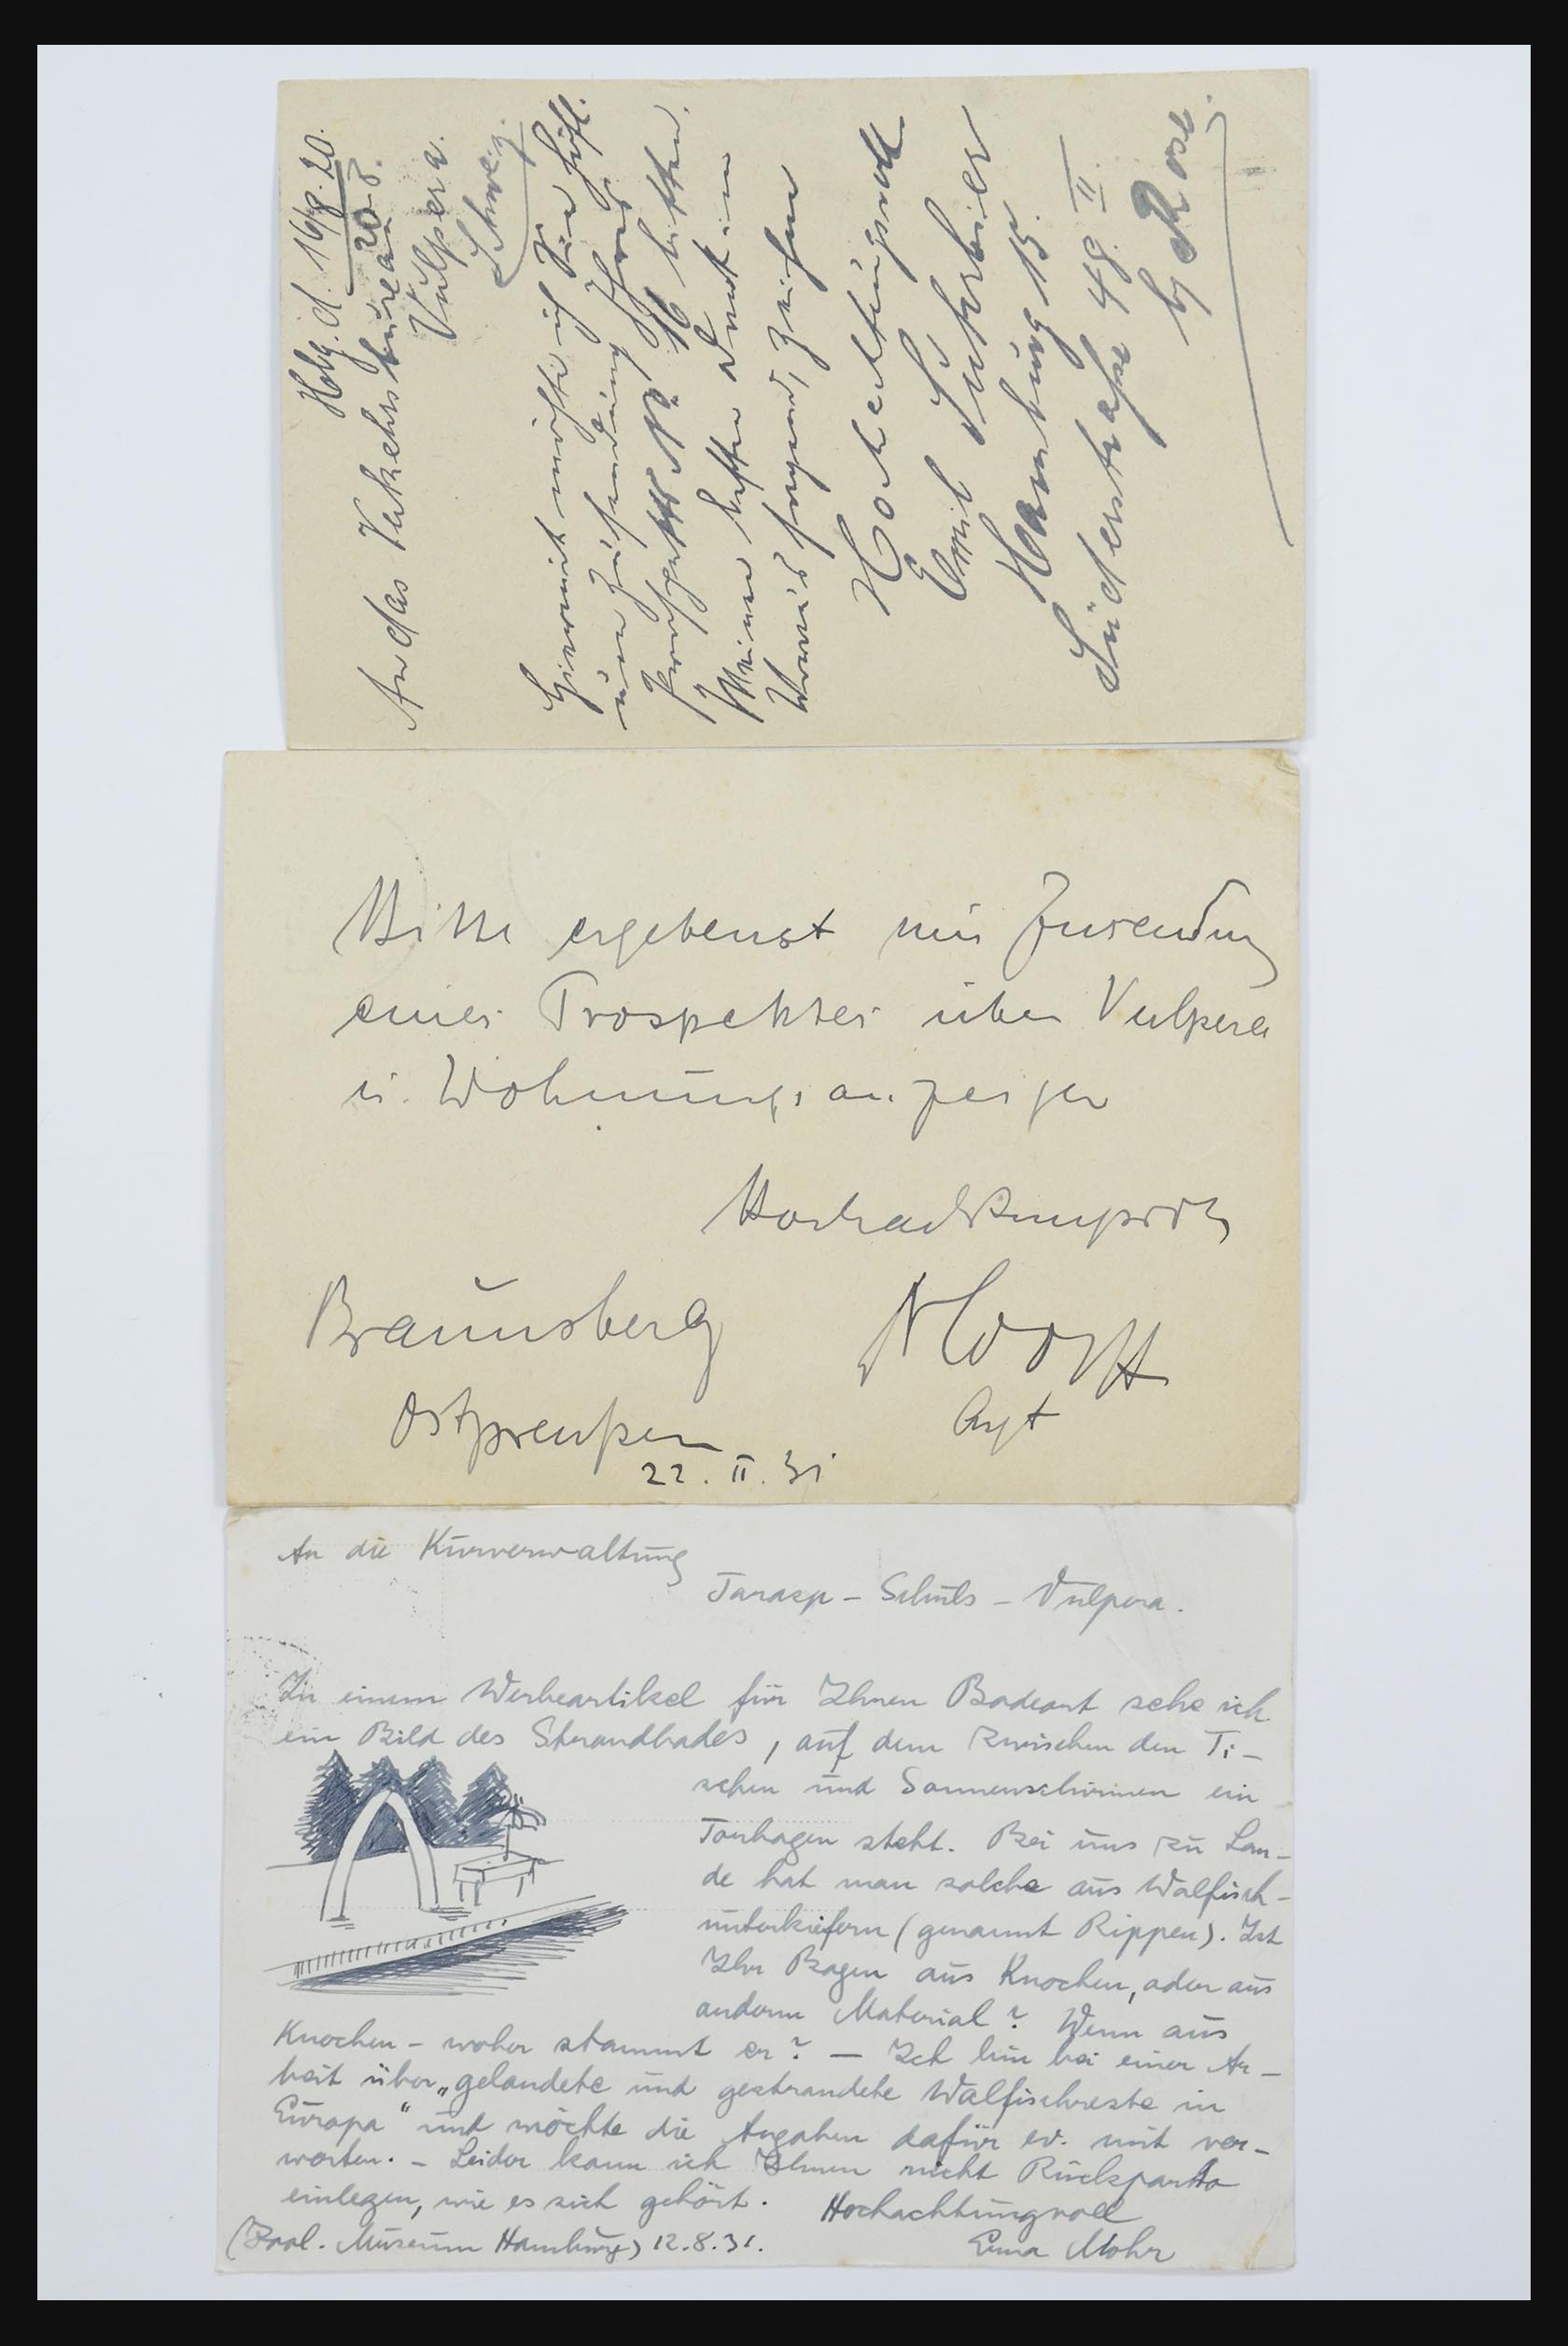 Hbg. d. 16/8. 20.
An das Verkehrsbureau
Vulpera.
Schweiz.
Hiermit möchte ich Sie höfl.
um Zusendung Ihres
Prospekts No 16 bitten.
Meinen besten Dank im
Voraus sagend, zeichne
Hochachtungsvoll
Emil
Hamburg 15.
Süderstraße 48. II.
by Rose.
Bitte ergebenst um Zusendung
eines Prospektes über Vulpera
u. Wohnungsanzeiger
Hochachtungsvoll
Braunsberg
Ostpreußen
Arzt
22. II. 31
An die Kurverwaltung
Tarasp – Schuls – Vulpera.
In einem Werbeartikel für Ihren Badeort sehe ich
ein Bild des Strandbades, auf dem zwischen den Ti-
schen und Sonnenschirmen ein
Torbogen steht. Bei uns zu Lan-
de hat man solche aus Walfisch-
unterkiefern (genannt Rippen). Ist
Ihr Bogen aus Knochen, oder aus
anderm Material? Wenn aus
Knochen – woher stammt er? – Ich bin bei einer Ar-
beit über „gelandete und gestrandete Walfischreste in
Europa“ und möchte die Angaben dafür ev. mit ver-
werten. – Leider kann ich Ihnen nicht Rückporto
einlegen, wie es sich gehört. Hochachtungsvoll
(Zool. Museum Hamburg) 12.8.31. Erna Mohr